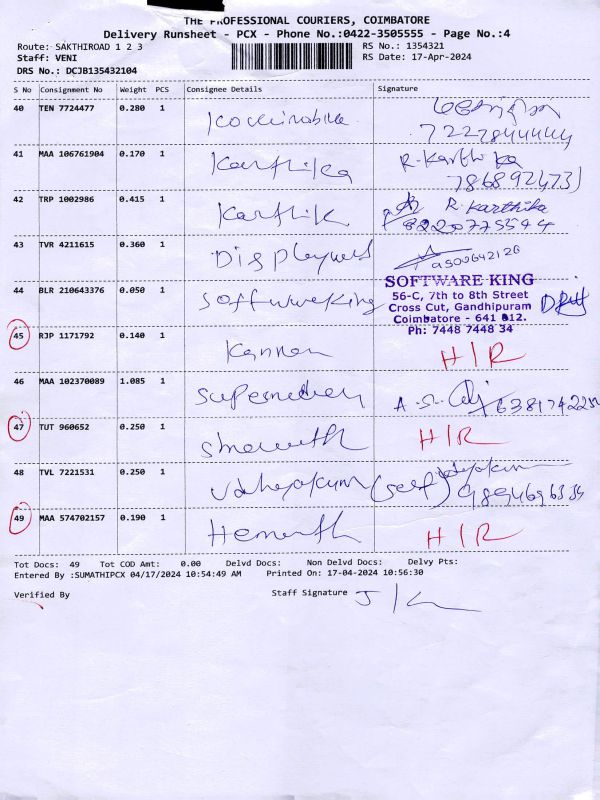 THE PROFESSIONAL COURIERS, COIMBATORE
Delivery Runsheet - PCX - Phone No.:0422-3505555 - Page No.:4
Route: SAKTHIROAD 1 2 3 RS No.: 1354321
Staff: VENI RS Date: 17-Apr-2024
DRS No.: DCJB135432104
S No Consignment No Weight PCS Consignee Details Signature
40 TEN 7724477 0.280 1
41 MAA 106761904 0.170 1 Karthika R. Karthika
42 TRP 1002986 0.415 1 Karthik R. Karthika
8220775544
43 TVR 4211615 0.360 1
44 BLR 210643376 0.050 1 Softwareking
SOFTWARE KING
56-C, 7th to 8th Street
Cross Cut, Gandhipuram
Coimbatore - 641 012.
Ph: 7448 7448 34
45 RJP 1171792 0.140 1 Kannan H/R
46 MAA 102370089 1.085 1
47 TUT 960652 0.250 1 H/R
48 TVL 7221531 0.250 1 (self)
49 MAA 574702157 0.190 1 Hemanth H/R
Tot Docs: 49 Tot COD Amt: 0.00 Delvd Docs: Non Delvd Docs: Delvy Pts:
Entered By :SUMATHIPCX 04/17/2024 10:54:49 AM Printed On: 17-04-2024 10:56:30
Verified By Staff Signature